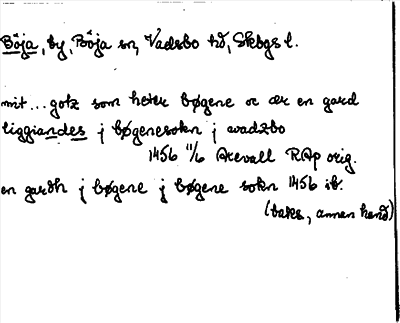 Böja, by, Böja sn, Vadsbo hd, Skbgs l.
mit... gotz som heter bøgene oc ær en gard
liggiandes j bøgenesokn j wadzbo
1456 11/6 Arevall RAp orig.
en gardh j bøgene j bøgene sokn 1456 ib.
(baks, annan hand)